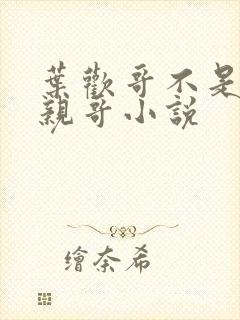 葉歡哥不是
親哥小說
繪奈希